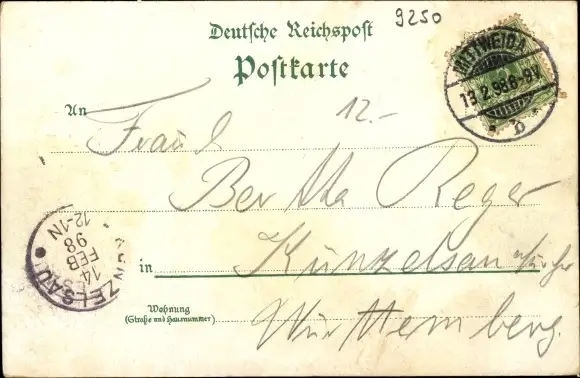 9250
Deutsche Reichspost
Postkarte
MITTWEIDA
13.2.98.6-9V.
b
An
12.-
Bertha Reger
in Künzelsau
Wohnung
(Straße und Hausnummer)
Württemberg.
KÜNZELSAU
14
FEB
98
12-1N